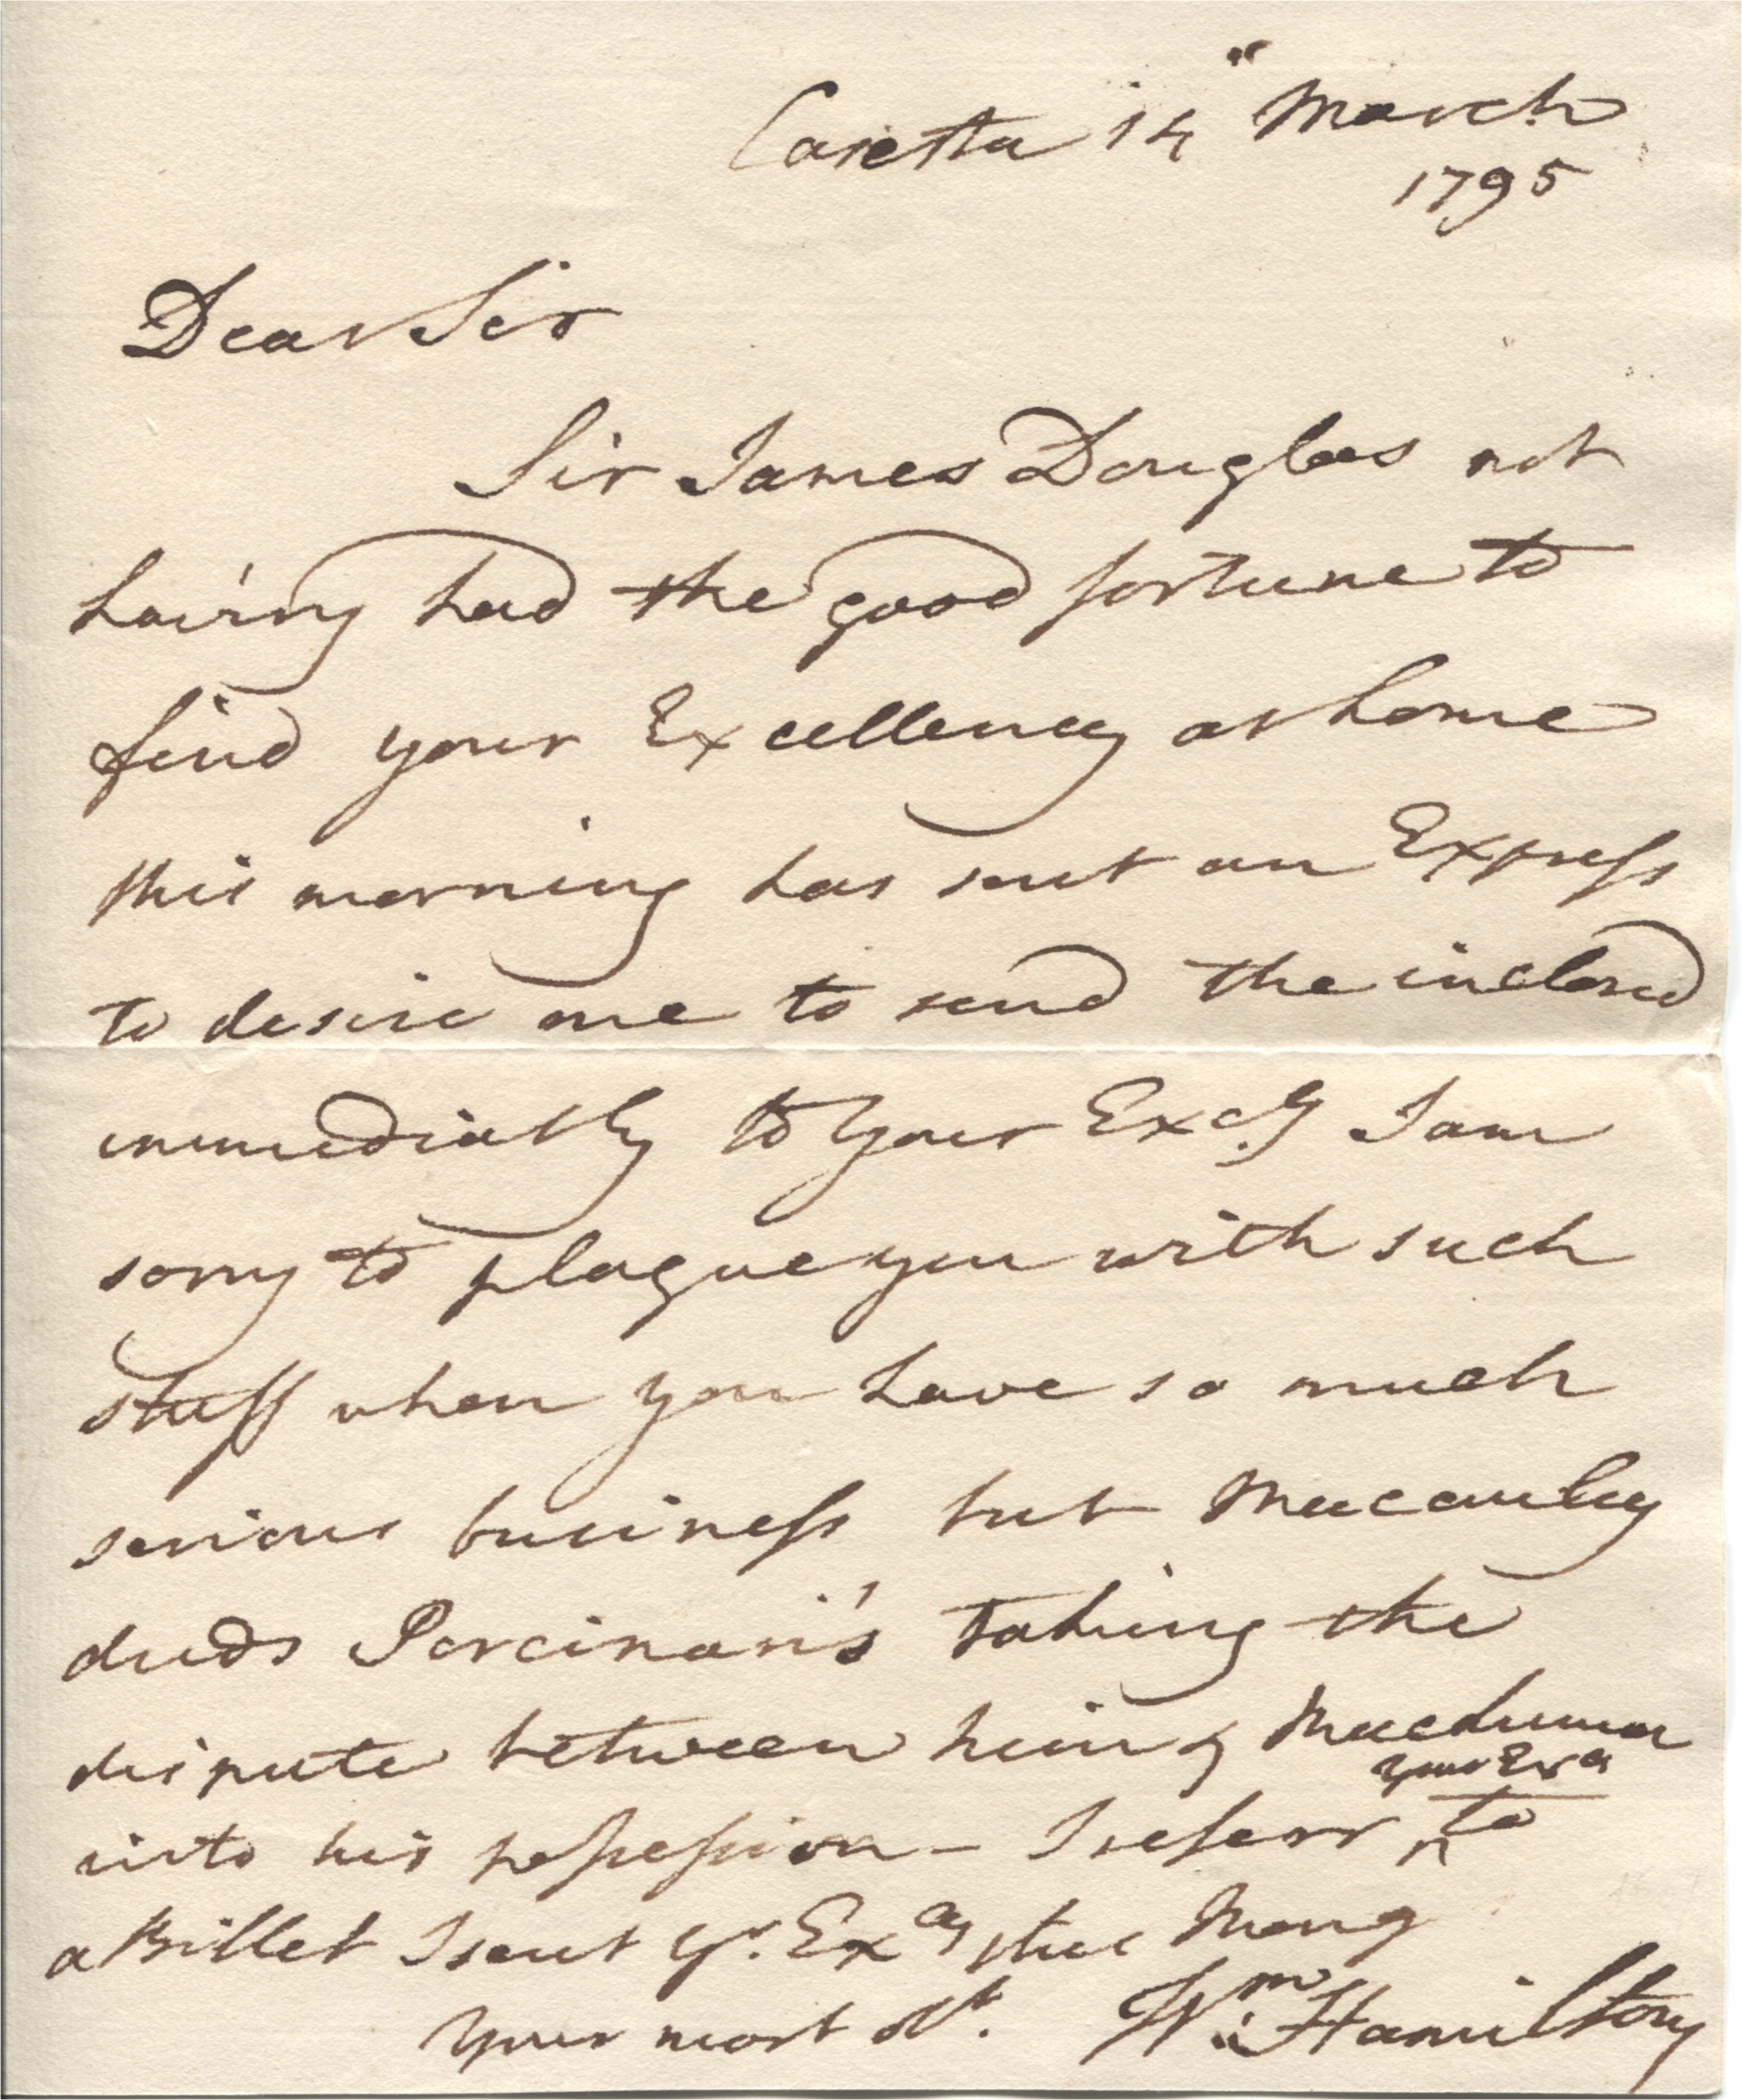 Caserta 14 March
1795
Dear Sir
Sir James Douglas not
having had the good fortune to
find your Excellency at home
this morning has sent an Express
to desire me to send the inclosed
immediatly to your Excy I am
sorry to plague you with such
stuff when you have so much
serious business but Macauley
dreads Porcinari's taking the
dispute between him &
your Excy
into his possession – I referr ^ to
a Billet I sent yr. Excy this Morng
Your most obt. Wm: Hamilton